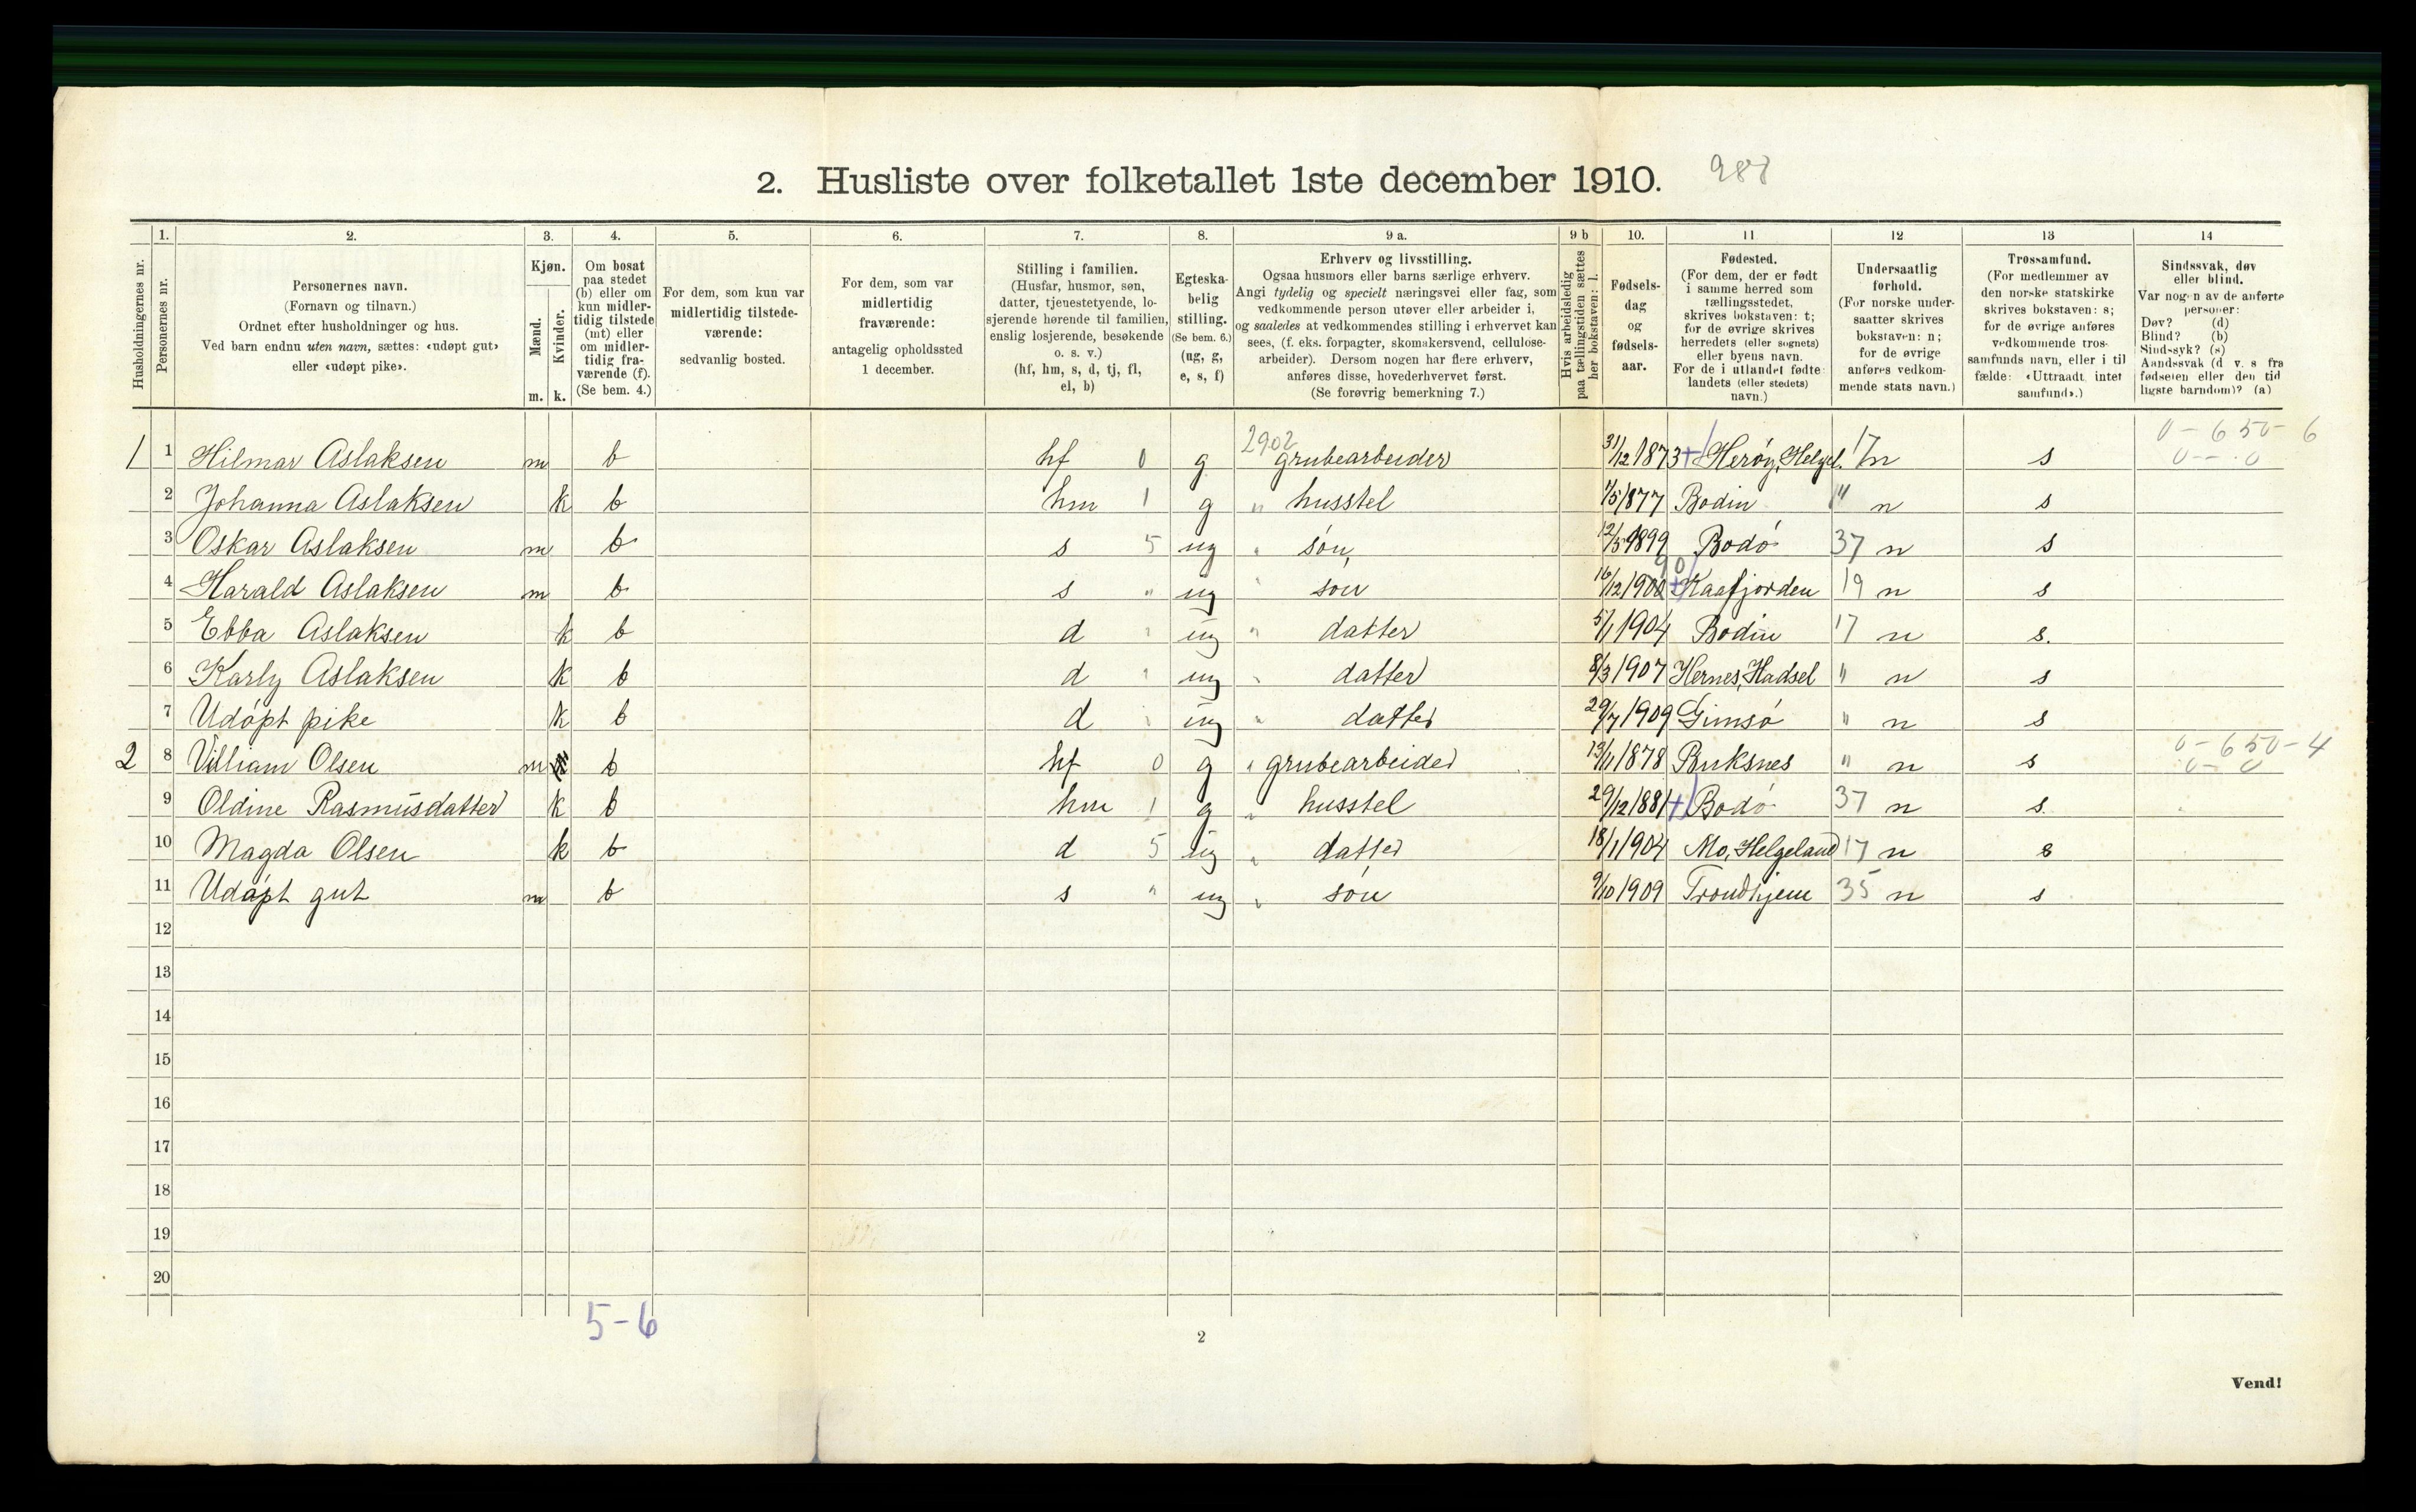 2. Husliste over folketallet 1ste december 1910. 988
1. 2. 3. 4. 5. 6. 7. 8. 9 a. 9 b 10. 11 12 13 14
Husholdningernes nr.
Personernes nr.
Personernes navn.
(Fornavn og tilnavn.)
Ordnet efter husholdninger og hus.
Ved barn endnu uten navn, sættes: «udøpt gut»
eller «udøpt pike».
Kjøn.
Mænd.
Kvinder.
m. k.
Om bosat
paa stedet
(b) eller om
kun midler-
tidig tilstede
(mt) eller
om midler-
tidig fra-
værende (f).
(Se bem. 4.)
For dem, som kun var
midlertidig tilstede-
værende:
sedvanlig bosted.
For dem, som var
midlertidig
fraværende:
antagelig opholdssted
1 december.
Stilling i familien.
(Husfar, husmor, søn,
datter, tjenestetyende, lo-
sjerende hørende til familien,
enslig losjerende, besøkende
o. s. v.)
(hf, hm, s, d, tj, fl,
el, b)
Egteska-
belig
stilling.
(Se bem. 6.)
(ug, g,
e, s, f)
Erhverv og livsstilling.
Ogsaa husmors eller barns særlige erhverv.
Angi tydelig og specielt næringsvei eller fag, som
vedkommende person utøver eller arbeider i,
og saaledes at vedkommendes stilling i erhvervet kan
sees, (f. eks. forpagter, skomakersvend, cellulose-
arbeider). Dersom nogen har flere erhverv,
anføres disse, hovederhvervet først.
(Se forøvrig bemerkning 7.)
Hvis arbeidsledig
paa tællingstiden sættes
her bokstaven: l.
Fødsels-
dag
og
fødsels-
aar.
Fødested.
(For dem, der er født
i samme herred som
tællingsstedet,
skrives bokstaven: t;
for de øvrige skrives
herredets (eller sognets)
eller byens navn.
For de i utlandet fødte:
landets (eller stedets)
navn.)
Undersaatlig
forhold.
(For norske under-
saatter skrives
bokstaven: n;
for de øvrige
anføres vedkom-
mende stats navn.)
Trossamfund.
(For medlemmer av
den norske statskirke
skrives bokstaven: s;
for de øvrige anføres
vedkommende tros-
samfunds navn, eller i til
fælde: «Uttraadt, intet
samfund».)
Sindssvak, døv
eller blind.
Var nogen av de anførte
personer:
Døv? (d)
Blind? (b)
Sindssyk? (s)
Aandssvak (d v. s fra
fødselen eller den tid
ligste barndom)? (a)
0-650-6
1 1 Hilmar Aslaksen m b hf 0 g 2902 grubearbeider 31/12 1873 + Herøy, Helgel. 17 n s 0-0
2 Johanna Aslaksen k b hm 1 g " husstel 7/5 1877 Bodin " n s
3 Oskar Aslaksen m b s 5 ug " søn, 12/5 1899 Bodø 37 n s
90
4 Harald Aslaksen m b s " ug " søn 16/12 1900 + Kaafjorden 19 n s
5 Ebba Aslaksen k b d " ug " datter 5/1 1904 Bodin 17 n s.
6 Karly Aslaksen k b d " ug " datter 8/3 1907 Hernes, Hadsel " n s
7 Udøpt pike k b d " ug " datter 29/7 1909 Gimsø " n s
2 8 Villiam Olsen m b hf 0 g " grubearbeider 13/11 1878 Buksnes " n s 0-650-4
0-0
9 Oldine Rasmusdatter k b hm 1 g " husstel 29/12 1881 + Bodø 37 n s.
10 Magda Olsen k b d 5 ug " datter 18/1 1904 Mo, Helgeland 17 n s
11 Udøpt gut m b s " ug " søn 9/10 1909 Trondhjem 35 n s
12
13
14
15
16
17
18
19
20
5-6
2
Vend!